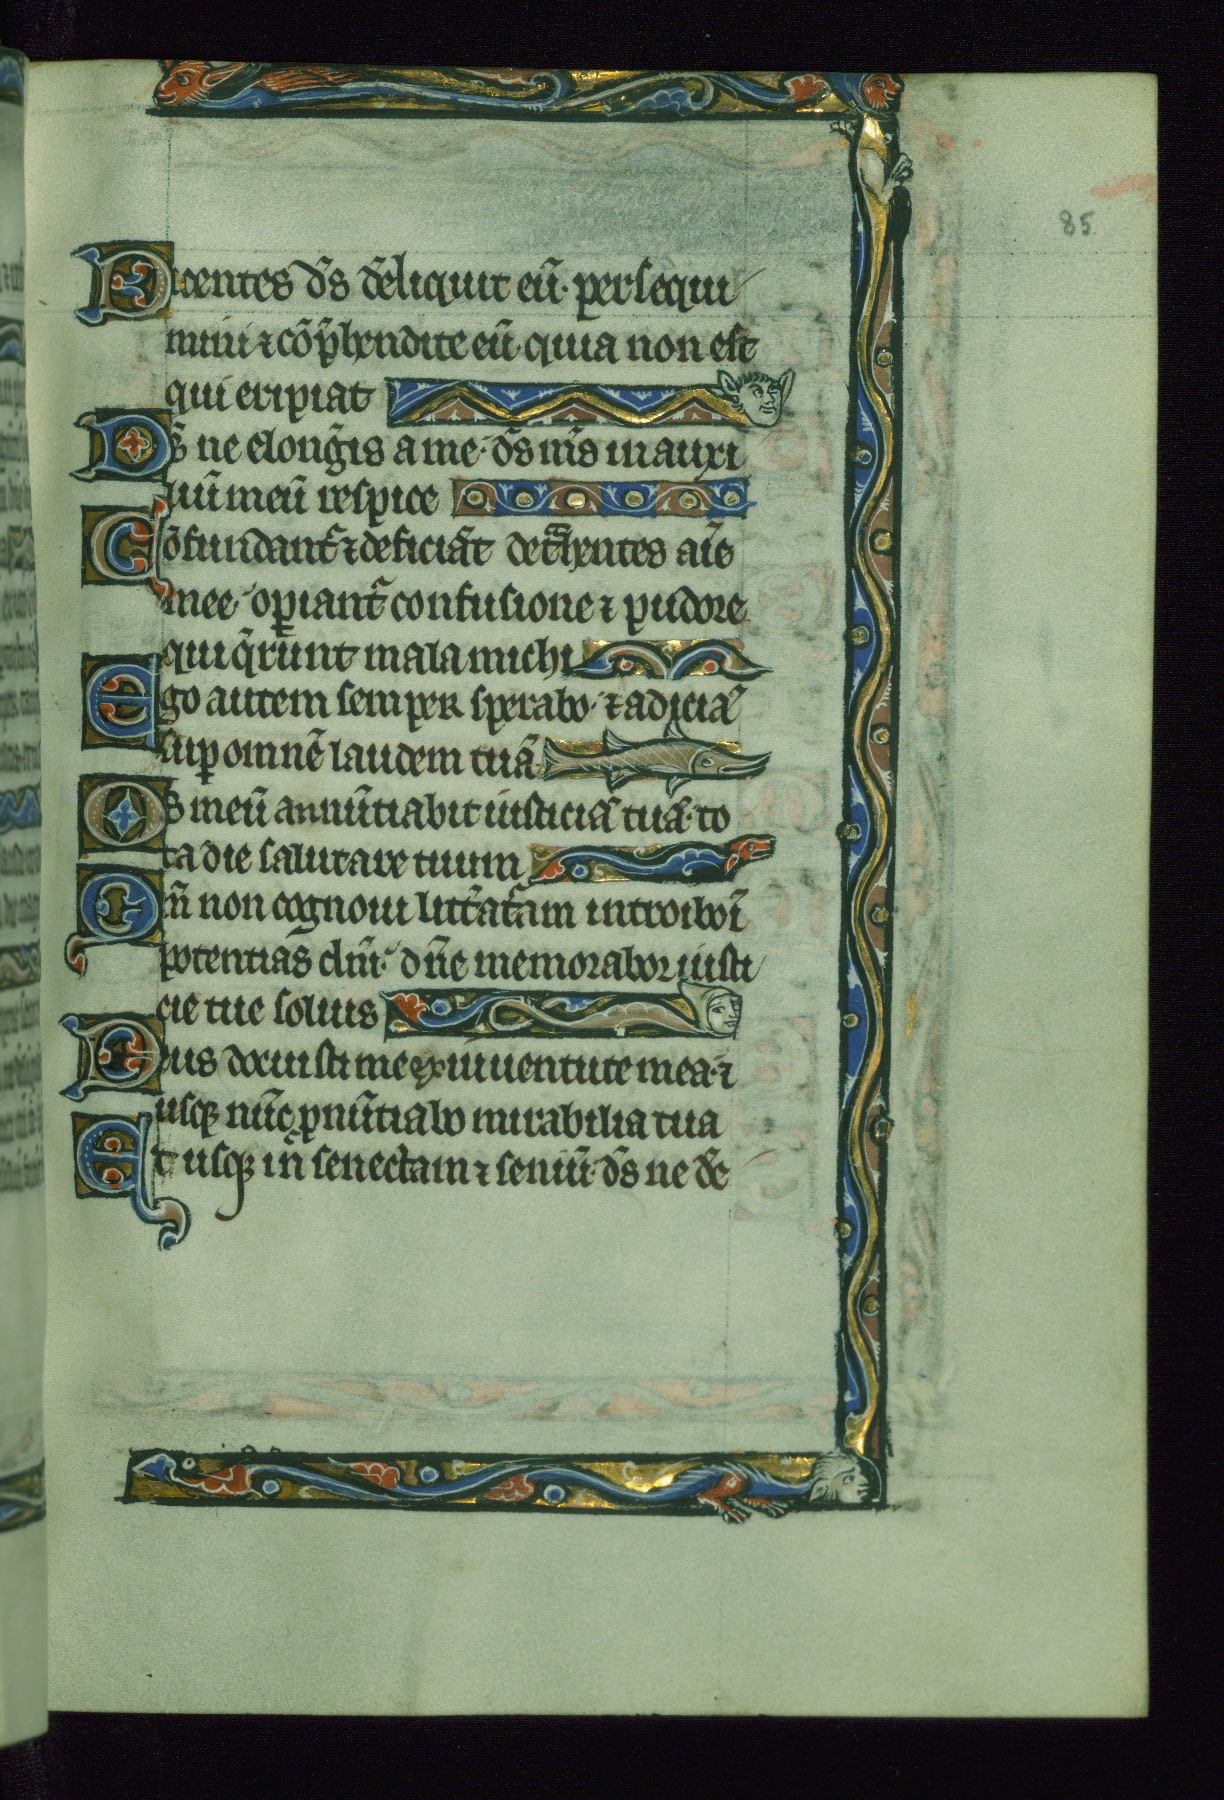 85
Dicentes d̄s d̄eliquit eū· persequi
mini ⁊ cōp̄hendite eū· quia non est
qui eripiat
D̄s ne elong̃is a me· d̄s m̄s in auxi
liū meū respice
Cōfundant᷑ ⁊ deficiāt det̃hentes aīe
mee· op̱iant᷑ confusione ⁊ pudore
qui q̄runt mala michi
Ego autem semper sperabo· ⁊ adiciā
sup̱ omnē laudem tuā
Os meū annūtiabit iusticiā tuā· to
ta die salutare tuum
Qm̄ non cognoui litt̃at᷑am introibo ī
potentias dn̄i· dn̄e memorabor iusti
cie tue solius
Deus docuisti me ex iuuentute mea· ⁊
usq; nūc p̱nūtiabo mirabilia tua
Et usq; in senectam ⁊ seniū· d̄s ne d̄e